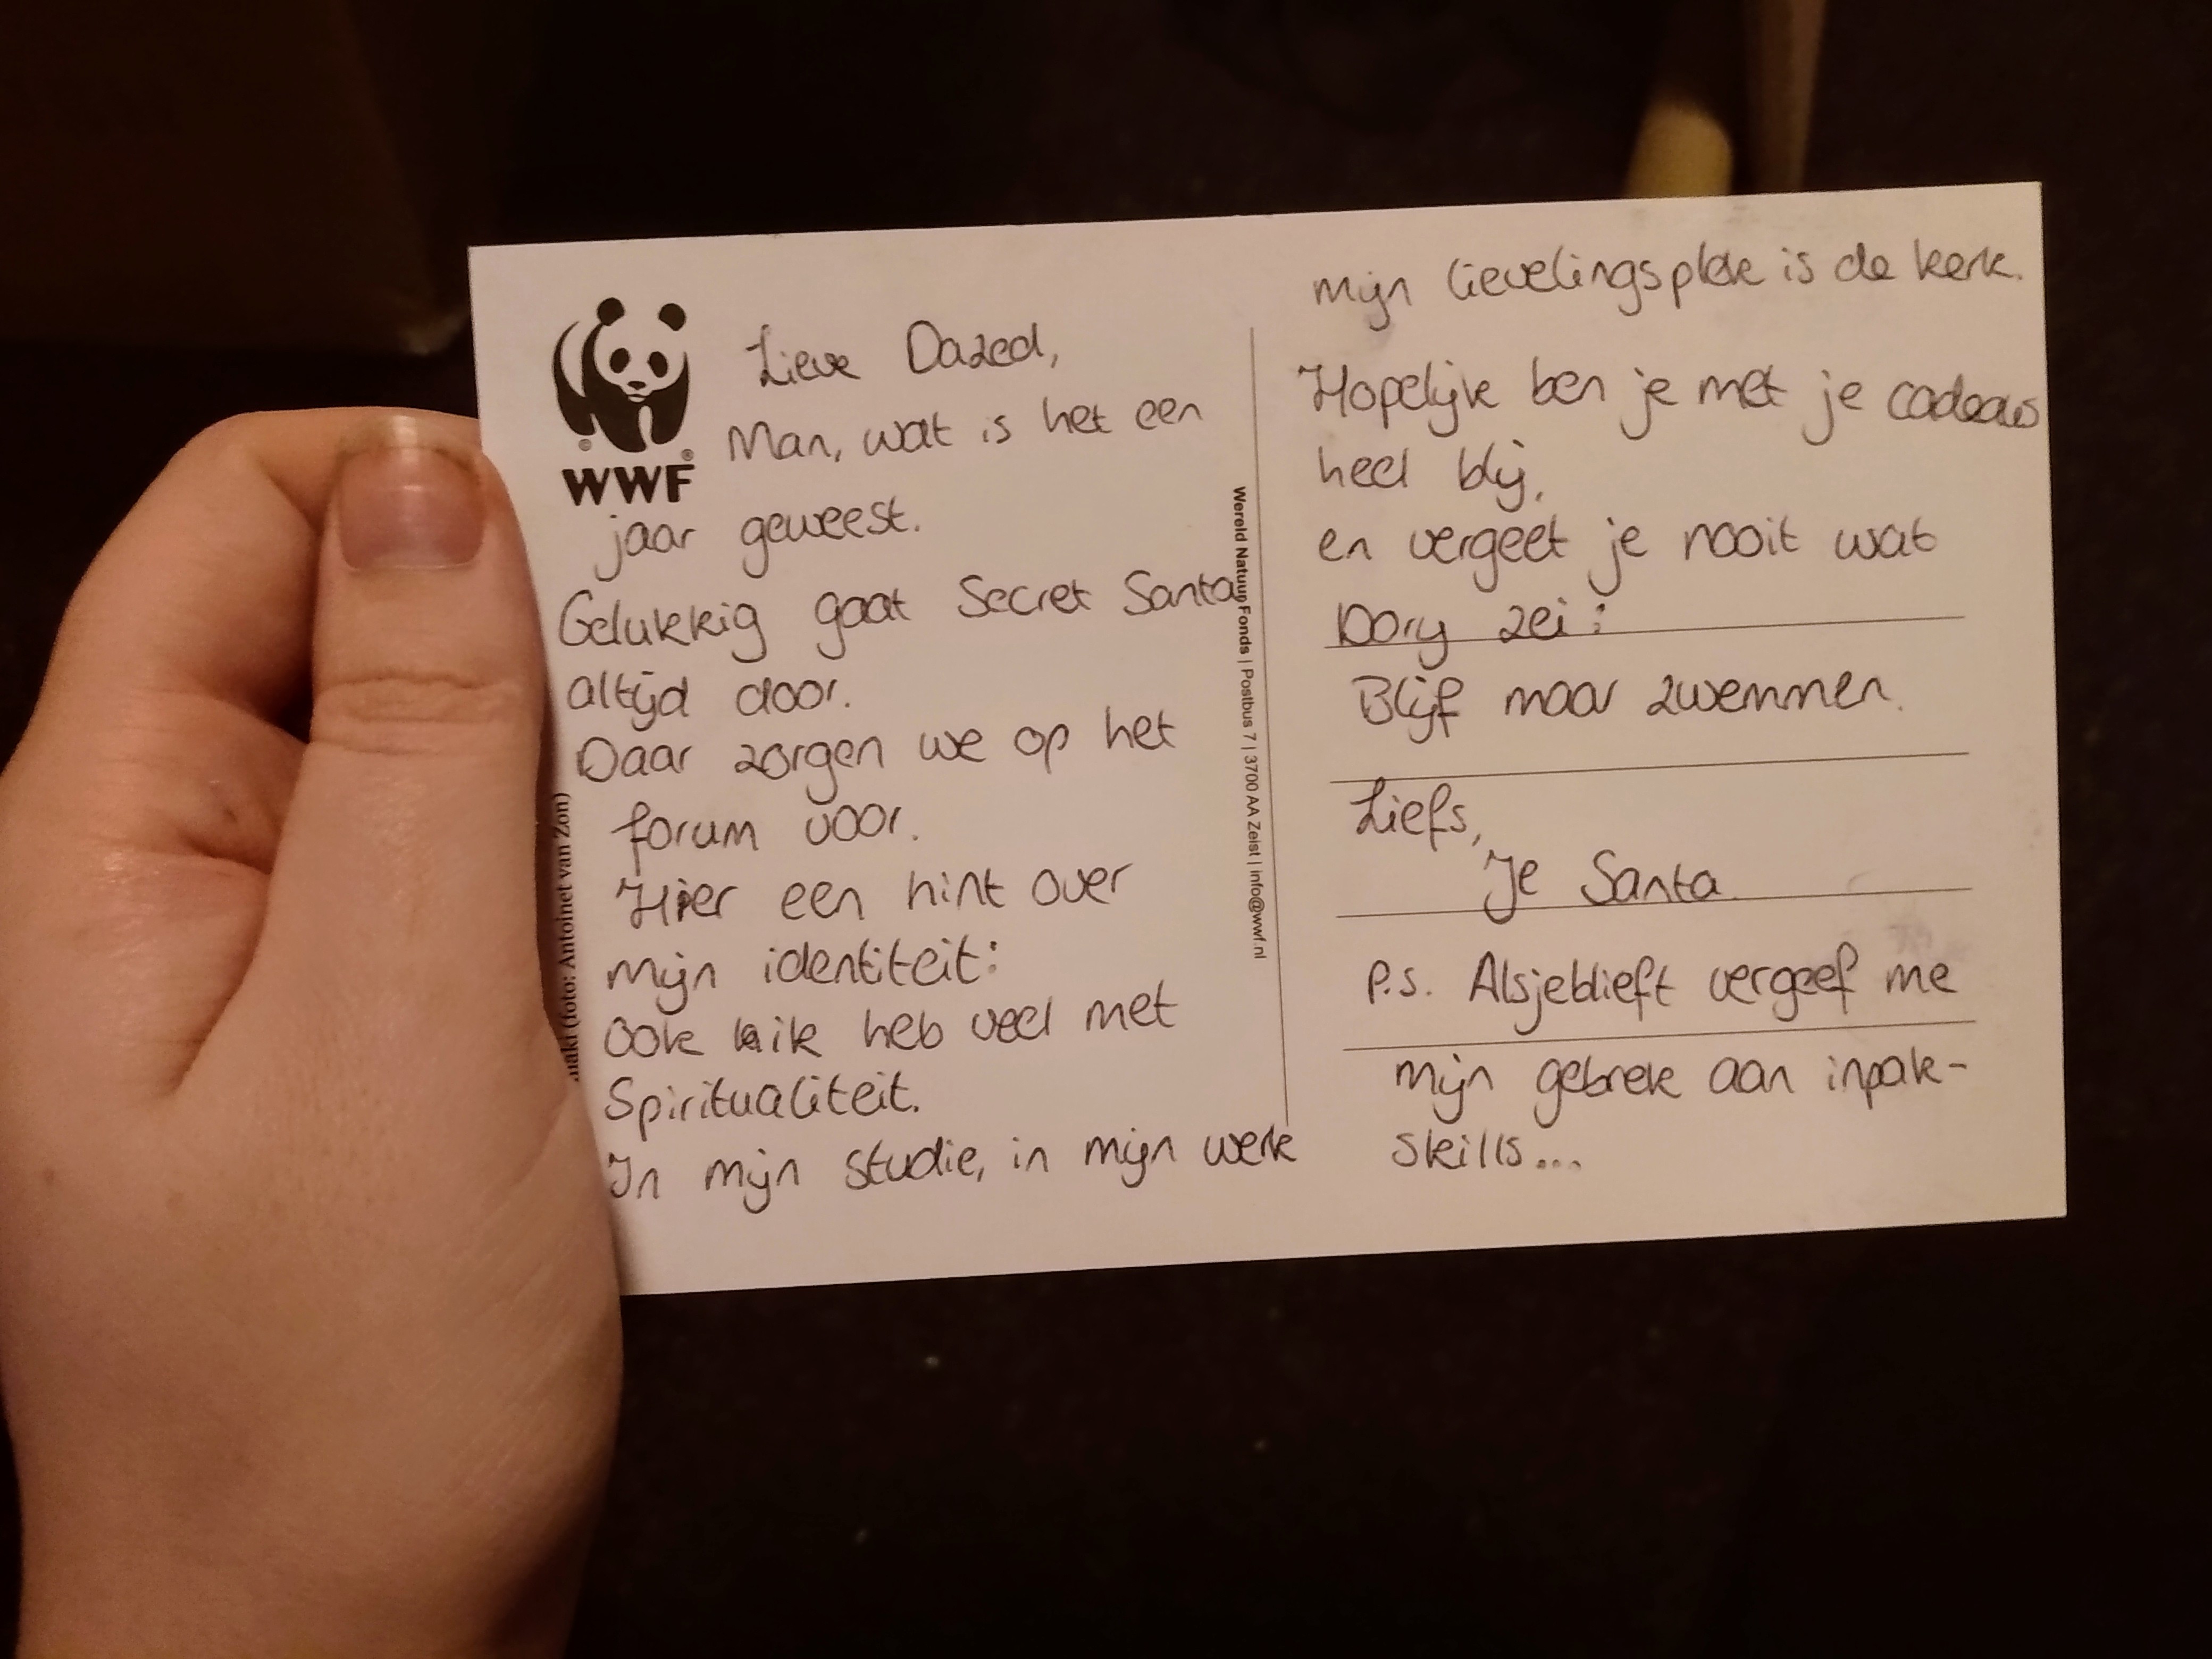 WWF
Lieve Dazed,
Man, wat is het een
jaar geweest.
Gelukkig gaat Secret Santa
altijd door.
Daar zorgen we op het
forum voor.
Hier een hint over
mijn identiteit:
Ook ik heb veel met
Spiritualiteit.
In mijn studie, in mijn werk
(foto: Antoinet van Zon)
Wereld Natuur Fonds | Postbus 7 | 3700 AA Zeist | info@wwf.nl
mijn lievelingsplek is de kerk.
Hopelijk ben je met je cadeaus
heel blij,
en vergeet je nooit wat
Dory zei:
Blijf maar zwemmen.
Liefs,
Je Santa.
P.s. Alsjeblieft vergeef me
mijn gebrek aan inpak-
skills...